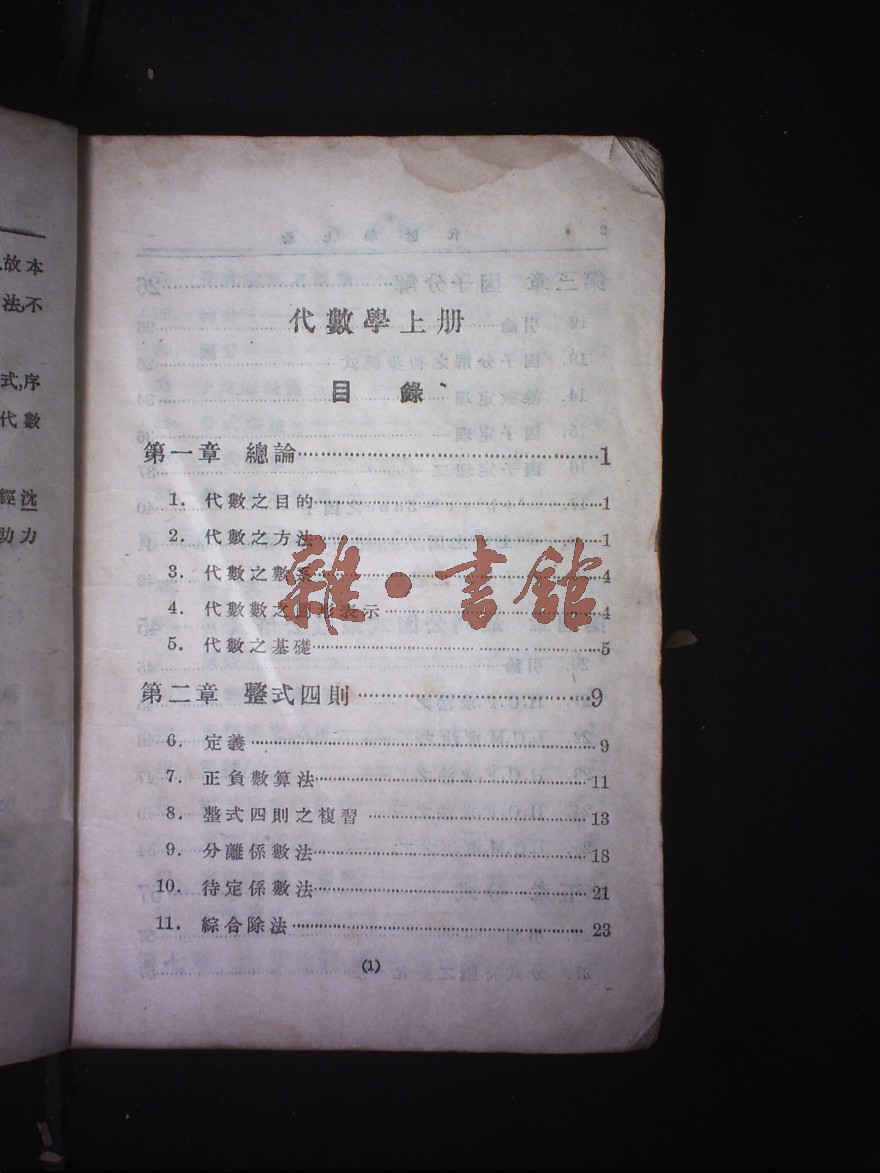 故本
法,不
式,序
代數
經沈
助力
代數學上册
目 錄
第一章 總論 1
1. 代數之目的 1
2. 代數之方法 1
3. 代數之數系 4
4. 代數數之圖形表示 4
5. 代數之基礎 5
雜·書館
第二章 整式四則 9
6. 定義 9
7. 正負數算法 11
8. 整式四則之複習 13
9. 分離係數法 18
10. 待定係數法 21
11. 綜合除法 23
(1)